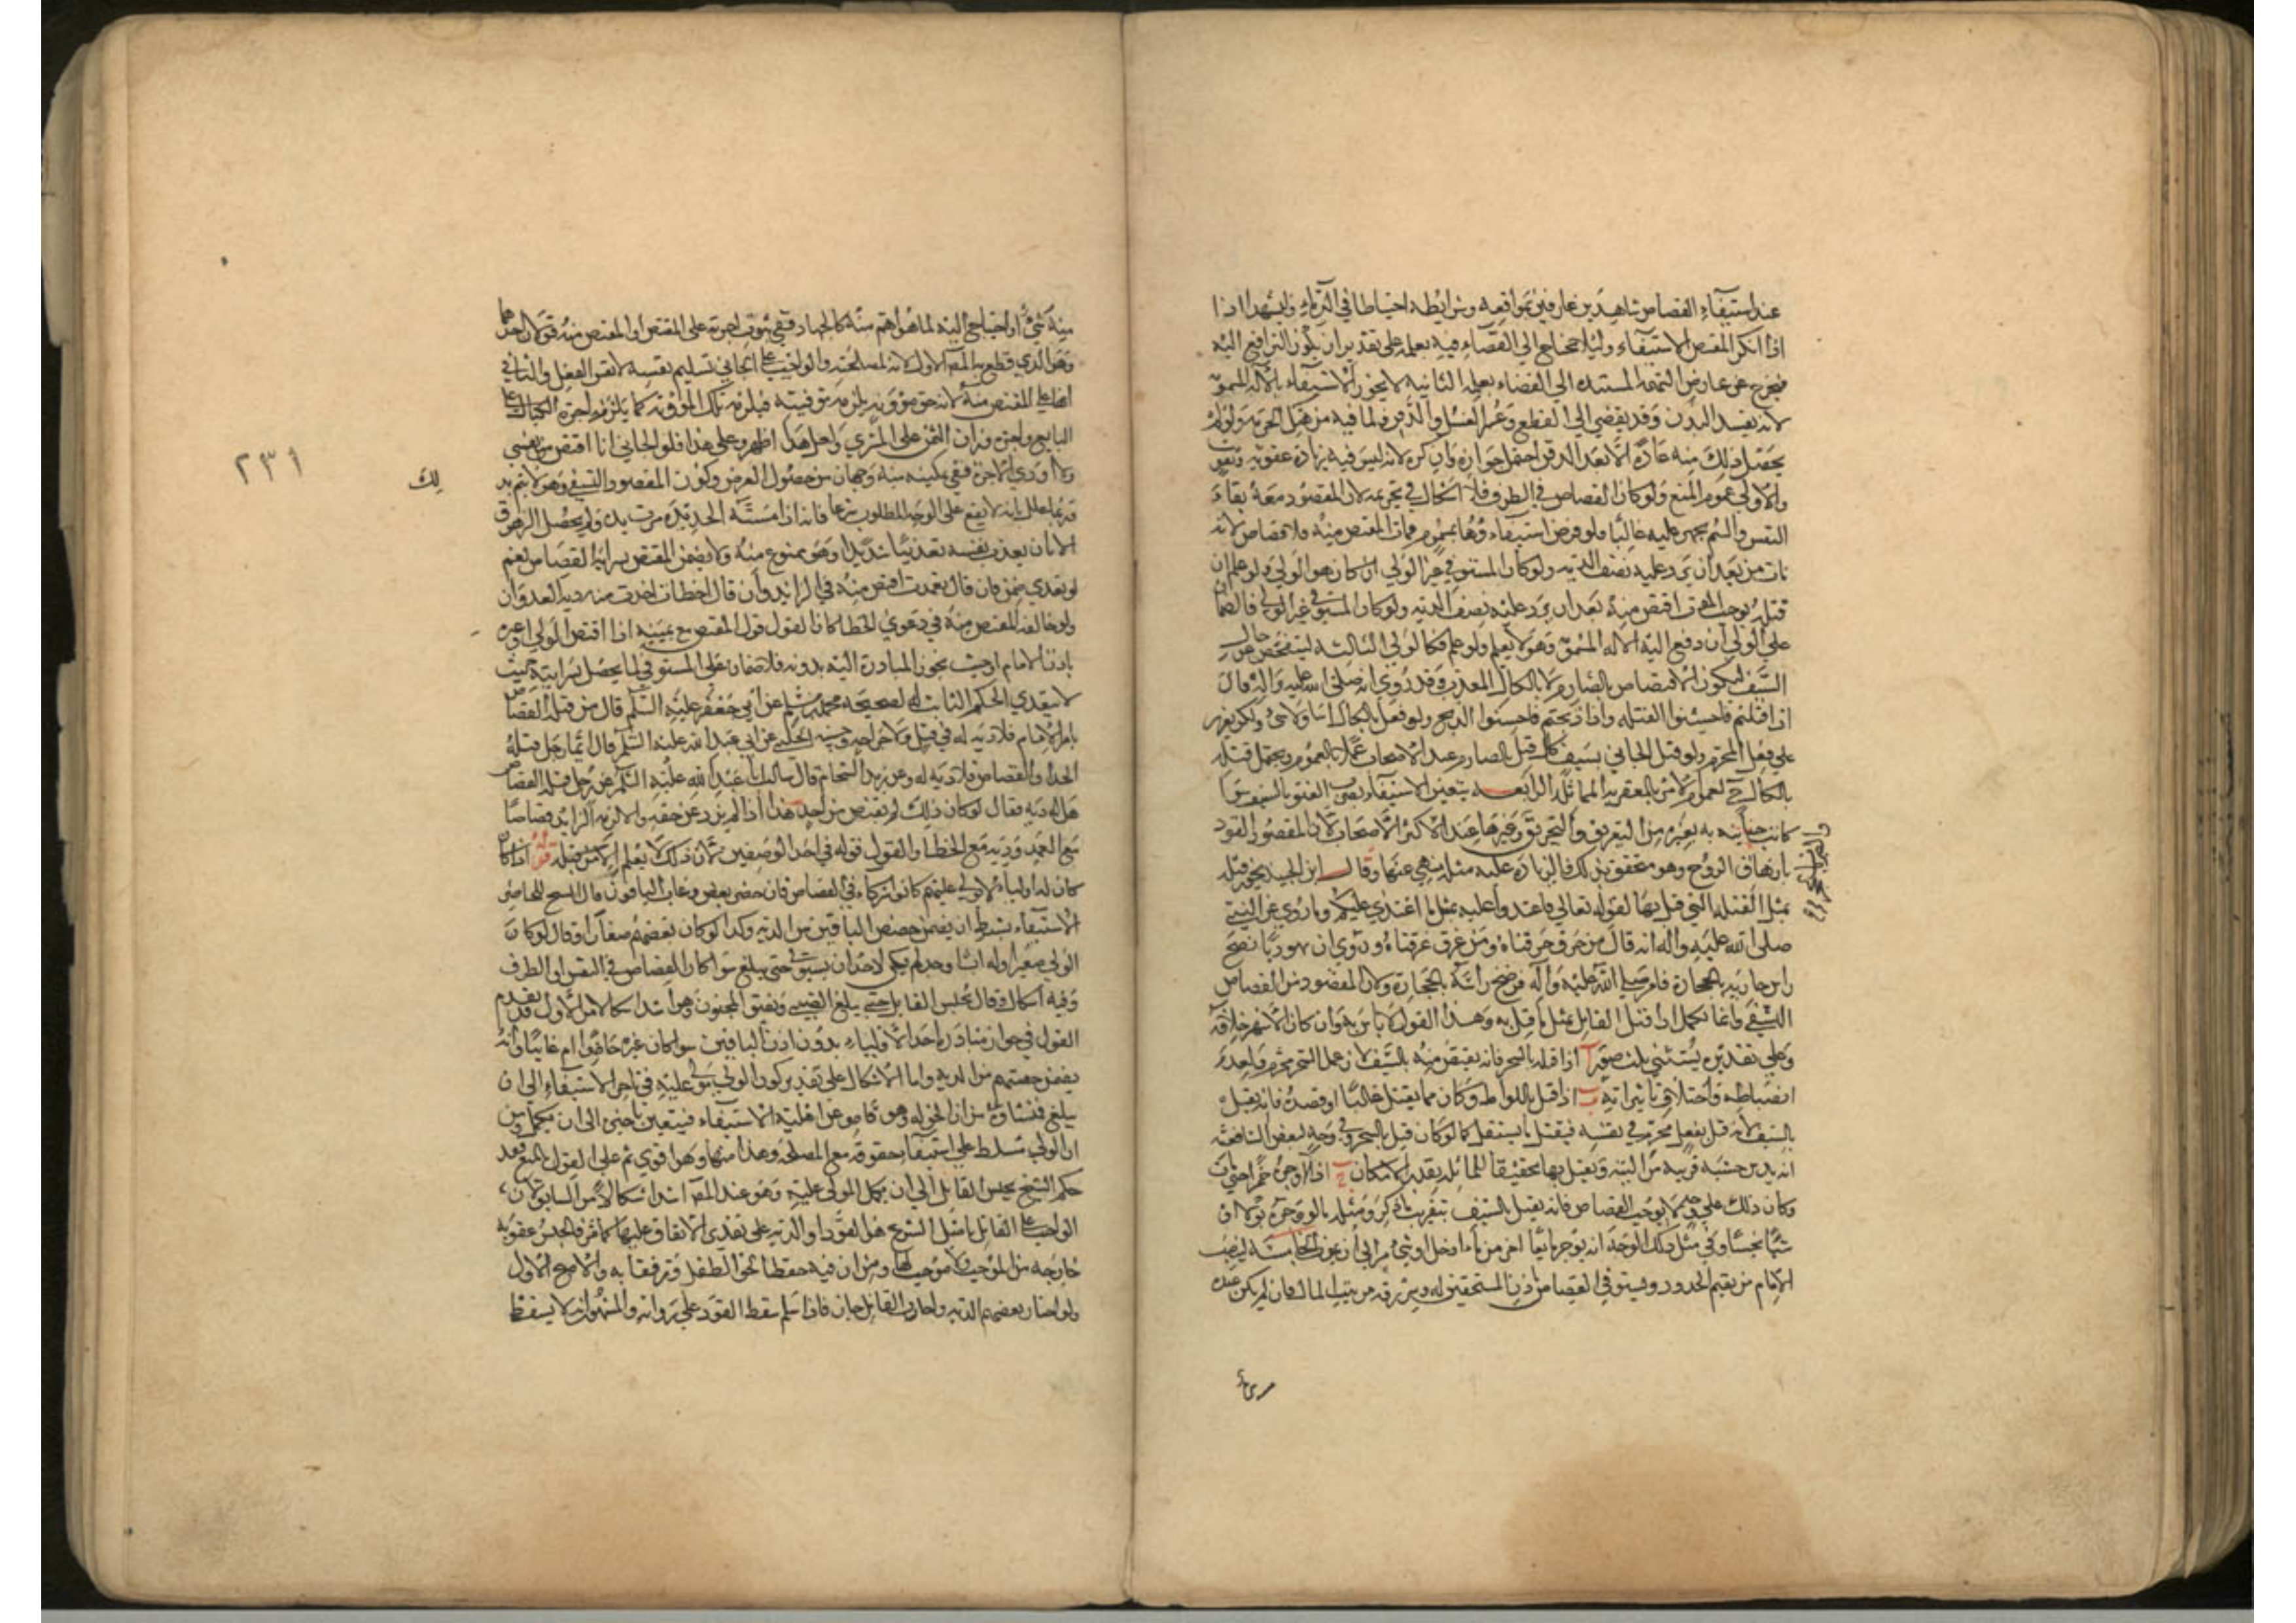 عند استيفاء القصاص شاهدين عارفين بمواقعه وشرايطه احتياطا في الدماء وليشهدا اذا
اذا انكر المقتص الاستيفاء ولئلا يحتاج الي القضاء فيه بعلمه علي تقدير ان يكون الترافع اليه
فيخرج عن عارض التهمة المستند الي القضاء بعلمه الثانية لا يجوز الاستيفاء بالالة المسمومة
لانه يفسد البدن وقد يفضي الي القطع وعسر الغسل والدفن ولما فيه من هتك الحرمة ولو لم
يحصل ذلك منه عادة الا بعد الدفن احتمل جوازه وان كره لانه ليس فيه زيادة عقوبة
والاولي عموم المنع ولو كان القصاص في الطرف فلا اشكال في تحريمه لان المقصود معه بقاء
النفس والسم يجهز عليه غالبا فلو فرض استيفاءوها بمسموم فمات المقتص منه فلا قصاص لانه
مات من بعد ان يرد عليه نصف الدية ولو كان المستوفي غير الولي ان كان هو الولي ولو علم ان
قتله يوجب الموت اقتص منه بعد ان يرد عليه نصف الدية ولو كان المستوفي غير الولي فالضمان
علي الولي ان دفع اليه الالة المسمومة وهو لا يعلم ولو علم فكالولي الثالثة ليتفحص عن حال
السيف ليكون الاقتصاص بالصارم لا بالكال المعذب فقد روي انه صلي الله عليه واله قال
اذا قتلتم فاحسنوا القتلة واذا ذبحتم فاحسنوا الذبح ولو فعل بالكال اسا ولا شيء ولكن يعزر
علي فعل المحرم ولو قتل الجاني بسيف كال قتل بالصارم عند الاصحاب عملا بالعموم ويحتمل قتله
بالكال لعموم الامر بالعقوبة المماثلة الرابعة يتعين الاستيفاء بضرب العنق بالسيف سوا
كانت جنايته به بغيره من التغريق والتحريق وغيرها عند الاكثر الاصحاب لان المقصود القود
بازهاق الروح وهو متحقق بذلك فالزيادة عليه مثلة منهي عنها وقال ابن الجنيد يجوز قتله
بمثل القتلة التي قتل بها لقوله تعالي فاعتدوا عليه بمثل ما اعتدي عليكم وما روي عن النبي
صلي الله عليه واله انه قال من حرق حرقناه ومن غرق غرقناه وروي ان يهوديا رضخ
راس جارية بالحجارة فامر صلي الله عليه واله فرضخ راسه بالحجارة ولان المقصود من القصاص
التشفي وانما يكمل اذا قتل القاتل بمثل ما قتل به وهذا القول لا باس به وان كان الاشهر خلافه
وعلي تقديره يستثني ثلث صور ا اذا قتله بالسحر فانه يقتص منه بالسيف لان عمل السحر محرم ولعدم
انضباطه واختلاف تاثيراته ب اذا قتل باللواط وكان مما يقتل غالبا او قصده فانه يقتل
بالسيف لانه قتل بفعل محرم في نفسه فيقتل بالسيف كما لو كان قتل بالسحر وفي وجه لبعض الشافعية
انه يدس خشبة قريبة من البتة ويقتل بها تحقيقا للمماثلة بقدر الامكان ج اذا اوجره خمرا حتي مات
وكان ذلك علي وجه يوجب القصاص فانه يقتل بالسيف بتقريب ما ذكر ومثله ما لو وجره بولا او
شيئا نجسا وفي مثل ذلك الوجه انه يوجر مايعا اخر من ماء او خل او شيء مر الخامسة لينصب
الامام من يقيم الحدود ويستوفي القصاص باذن المستحقين له ويرزقه من بيت المال فان لم يكن عنده
منه شيء او احتياج اليه لما هو اهم منه كالجهاد ففي ثبوت اجرته علي المقتص او المقتص منه قولان احدهما
وهو الذي قطع به المصـ الاول لانه والواجب علي الجاني تسليم نفسه لا نفس الفعل والثاني
انها علي المقتص منه لانه حق مؤونه يلزمه توفيته فيلزمه تلك المؤونة كما يلزم اجرة الكيال علي
البايع واجرة وزان الثمن علي المشتري ولعل هذا اظهر وعلي هذا فلو قال الجاني انا اقتص من نفسي
ولا اؤدي الاجرة ففي تمكينه منه وجهان من حصول الغرض وكون المقصود التشفي وهو لا يتم به
وربما علل بانه لا يقع علي الوجه المطلوب شرعا فانه اذا مسته الحديدة فترت يده ولم يحصل الزهوق
الا بان يعذب نفسه تعذيبا شديدا وهو ممنوع منه ولا يضمن المقتص سراية القصاص نعم
لو تعدي ضمن فان قال تعمدت اقتص منه في الزائد وان قال اخطات اخذت منه دية العدوان
ولو خالفه المقتص منه في دعوي الخطا كان القول قول المقتص مع يمينه اذا اقتص الولي او غيره
باذن الامام او حيث يجوز المبادرة اليه بدونه فلا ضمان علي المستوفي لما يحصل بسرايته حيث
لا يتعدي الحكم الثابت له لصحيحة محمد بن مسلم عن ابي جعفر عليه السلم قال من قتله القصاص
بامر الامام فلا دية له في قتل ولا جراحة وحسنه الحلبي عن ابي عبد الله عليه السلم قال ايما رجل قتله
الحد او القصاص فلا دية له وعن زيد الشحام قال سالت ابا عبد الله عليه السلم عن رجل قتله القصاص
هل له دية فقال لو كان ذلك لم يقتص من احد هذا اذا لم يزد عن حقه والا لزمه الزايد قصاصا
مع العمد ودية مع الخطا والقول قوله في احد الوصفين لان ذلك لا يعلم الا من قبله قوله اذا كان
كان له اولياء لا ولي عليهم كانوا شركاء في القصاص فان حضر بعض وغاب الباقون قال الشيخ للحاضر
الاستيفاء بشرط ان يضمن حصص الباقين من الدية وكذا لو كان بعضهم صغارا وقال لو كان
الولي صغيرا وله اب او جد لم يكن لاحد ان يستوفي حتي يبلغ سوا كان القصاص في النفس او الطرف
وفيه اشكال وقال يحبس القاتل حتي يبلغ الصبي ويفيق المجنون وهو اشد اشكالا من الاول تقدم
القول في جواز مبادرة احد الاولياء بدون اذن الباقين سوا كان غيره حاضرا ام غايبا وانه
يضمن حصتهم من الدية واما الاشكال علي تقدير كون الولي مولي عليه في تاخير الاستيفاء الي ان
يبلغ فمنشاوه من ان الحق له وهو قاصر عن اهلية الاستيفاء فيتعين تاخيره الي ان يكمل ومن
ان الولي مسلط علي استيفاء حقوقه مع المصلحة وهذا منها وهو اقوي ثم علي القول بالمنع فقد
حكم الشيخ بحبس القاتل الي ان يكمل المولي عليه وهو عند المصـ اشد اشكالا من السابق لان
الواجب علي القاتل باصل الشرع هو القود او الدية علي تقدير الاتفاق عليها كما مر فالحبس عقوبة
خارجة من الموجب ولا موجب لها ومن ان فيه حفظا لحق الطفل وترفقا به والاصح الاول
ولو اختار بعضهم الدية واجاب القاتل جاز فاذا سلم سقط القود علي رواية والمشهور انه لا يسقط
٢٣١